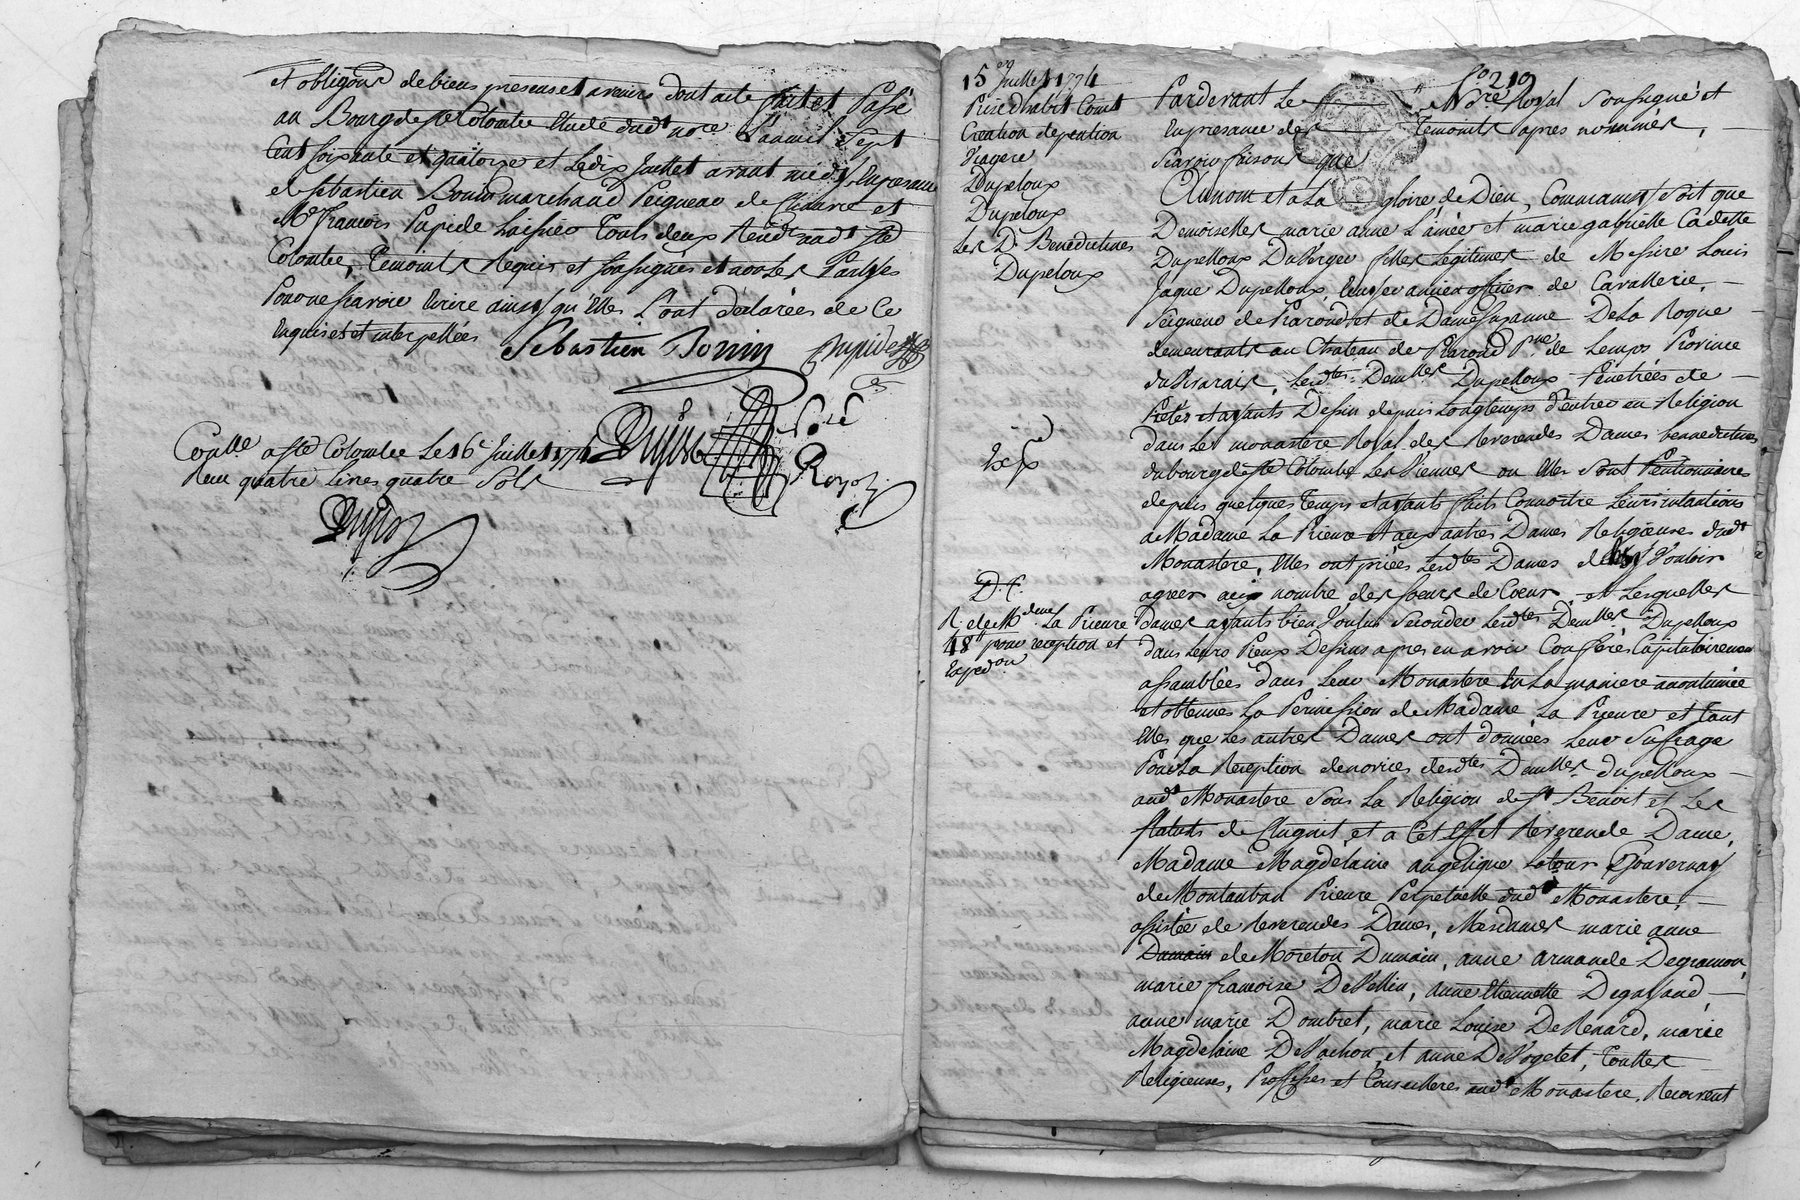 et obligons de biens presens et avenirs dont acte fait et Passé
au Bourg de ste Colombe Etude dudt nore L'an mil Sept
Cent soixante et quatorze et Le dix Juillet avant midy, En presence
de Sébastien Bonin marchand Peigneur de Chanvre et
Me francois Pupide huissier Tous deux Residt audt ste
Colombe, Temoints Requis et soussignés et non Les Parties
Pour ne sçavoir Ecrire ainsy qu'Elles L'ont déclarées de Ce
Enquises et interpellées
Sébastien Bonin Pupide
Conlle a ste Colombe Le 16e Juillet 1774
Reçu quatre Livres quatre Sols
Nore
Royal
15 Juillet 1774
Prise d'habit Cont
Creation de pention
Viagere
Dupeloux
Dupeloux
Les De Benedictines
Dupeloux
D. C.
R. de Me La Prieure
48 pour reception et
Expedon
fo 219
Pardevant Le Nore Royal soussigné et
En presance des Temoints apres nommés,
sçavoir faisons que
Au nom et a La gloire de Dieu, Comme ainsy soit que
Demoiselles marie anne L'ainée et marie gabrielle Cadette
Dupelloux Duverger filles Legitimes de Messire Louis
Jaque Dupelloux, Ecuyer ancien officier de Cavallerie,
Seigneur de et de Dame Suzanne De La Roque
demeurants au Chateau de Pse de Lemps Province
du Vivarais, Lesdtes Demlles Dupelloux Penétrées de
Pietés et ayants Dessin depuis Longtemps d'entrer en Religion
dans Les monastere Royal des Reverendes Dames benedictines
du bourg de ste Colombe Les Vienne ou Elles sont Pentionnaires
depuis quelques Temps et ayants faits Connoitre Leurs intantions
a Madame La Prieure et aux autres Dames Religieuses dudt
Monastere, Elles ont priées Lesdtes Dames de Vouloir
agreer au nombre des Sœurs de Cœur, et Lesquelles
dames ayants bien Voulu Seconder Lesdtes Demlles Dupelloux
dans Leurs Pieux Dessins apres en avoir Conferés Capitulairement
assamblées dans Leur Monastere En La maniere accoutumée
et obtenues La Permission de Madame La Prieure et tant
Elles que Les autres Dames ont données Leur Suffrage
Pour La Reception de novices desdtes Demlles dupelloux
audt Monastere Sous La Religion de st Benoit et Les
statuts de Clugnit, et a Cet Effet Reverende Dame,
Madame Magdelaine angelique Latour Gouvernay
de Montauban Prieure Perpetuelle dudt Monastere,
assistée de Reverendes Dames, Mesdames marie anne
de Moreton Dumain, anne armande Degramon,
marie francoise DeVellin, anne Etiennette Degassaud,
anne marie Dombret, marie Louise DeRenard, marie
Magdelaine DeVachon, et anne DeVogelet, Touttes
Religieuses, Proffesses et Conseilleres audt Monastere, Recoivent